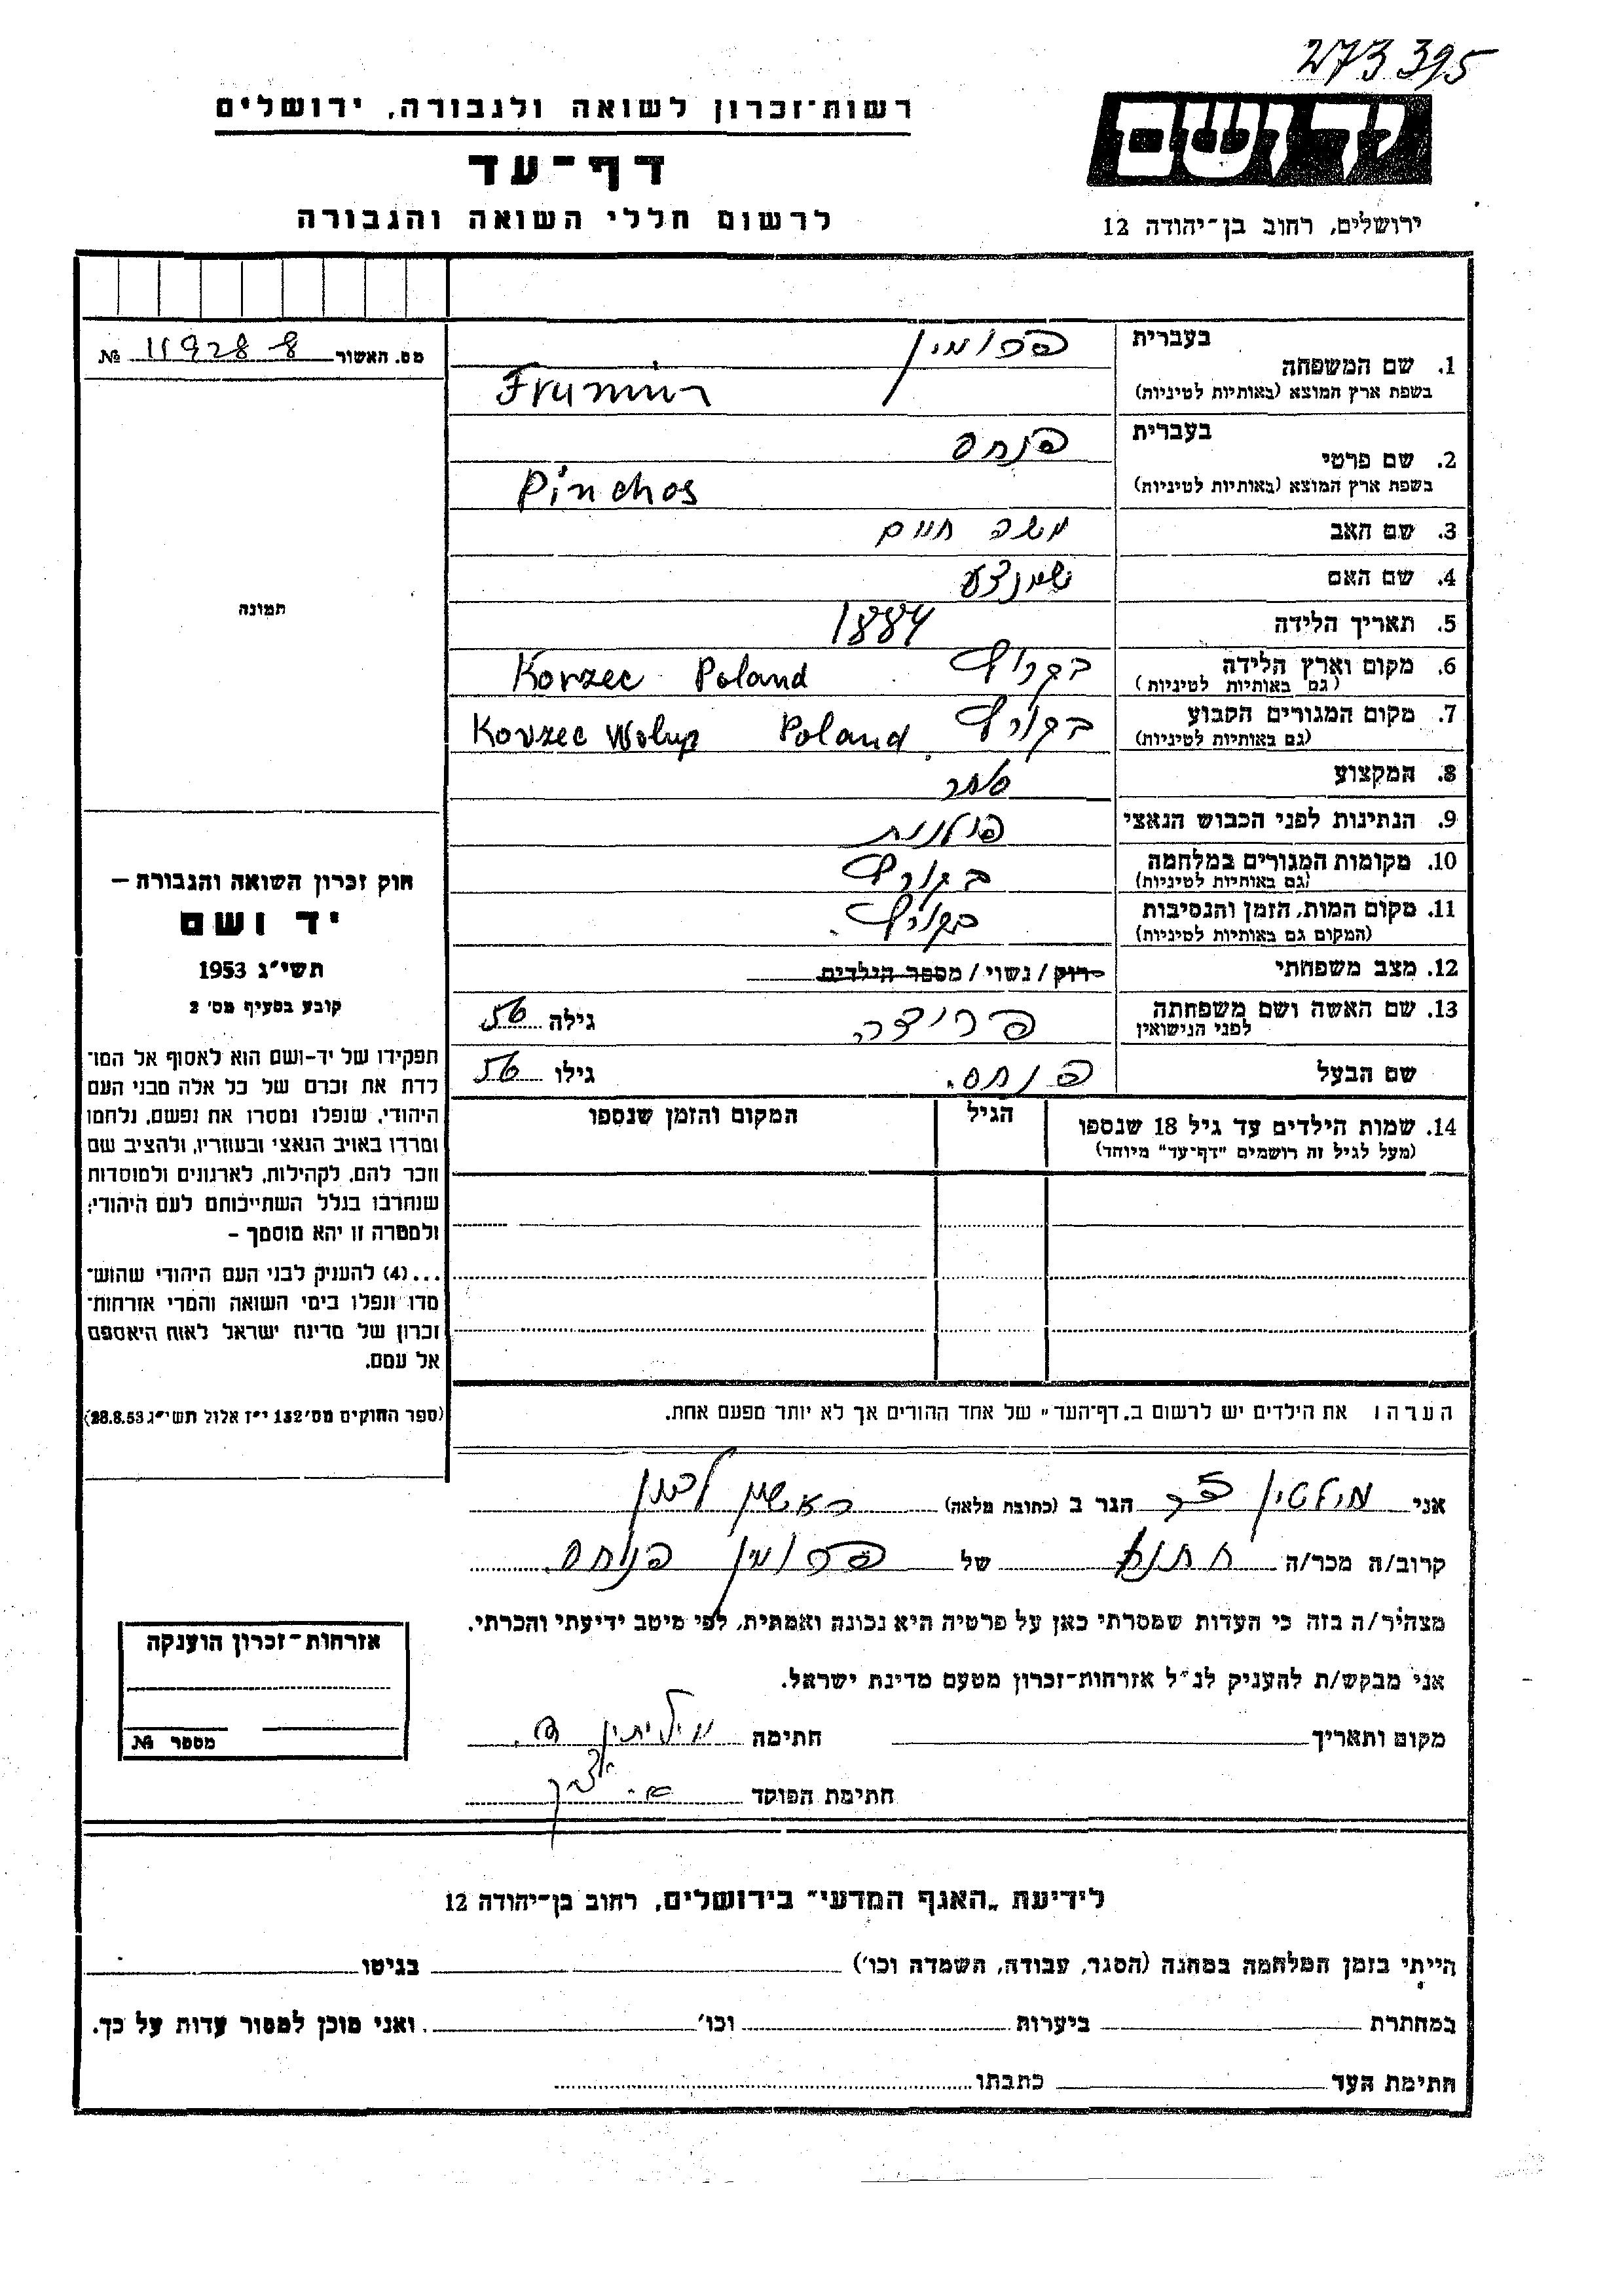 273395
רשות־זכרון לשואה ולגבורה, ירושלים
דף־עד
לרשום חללי השואה והגבורה
יד ושם
ירושלים, רחוב בן־יהודה 12
מס. האשור 119288 №
תמונה
חוק זכרון השואה והגבורה —
יד ושם
תשי״ג 1953
קובע בסעיף מס׳ 2
תפקידו של יד-ושם הוא לאסוף אל המו־
לדת את זכרם של כל אלה מבני העם
היהודי, שנפלו ומסרו את נפשם, נלחמו
ומרדו באויב הנאצי ובעוזריו, ולהציב שם
וזכר להם, לקהילות, לארגונים ולמוסדות
שנחרבו בגלל השתייכותם לעם היהודי;
ולמטרה זו יהא מוסמך –
...(4) להעניק לבני העם היהודי שהוש־
מדו ונפלו בימי השואה והמרי אזרחות־
זכרון של מדינת ישראל לאות היאספם
אל עמם.
(ספר החוקים מס׳ 132 י״ז אלול תשי״ג 28.8.53)
1. שם המשפחה
בעברית פרומין
בשפת ארץ המוצא (באותיות לטיניות) Frumin
2. שם פרטי
בעברית פנחס
בשפת ארץ המוצא (באותיות לטיניות) Pinchos
3. שם האב משה חיים
4. שם האם
5. תאריך הלידה 1884
6. מקום וארץ הלידה
(גם באותיות לטיניות) Korzec Poland
7. מקום המגורים הקבוע
(גם באותיות לטיניות) Korzec Wolyp Poland
8. המקצוע סוחר
9. הנתינות לפני הכבוש הנאצי פולנית
10. מקומות המגורים במלחמה בקוריץ
(גם באותיות לטיניות)
11. מקום המות, הזמן והנסיבות בקוריץ.
(המקום גם באותיות לטיניות)
12. מצב משפחתי רווק / נשוי / מספר הילדים
13. שם האשה ושם משפחתה פריצה גילה 56
לפני הנישואין
שם הבעל פנחס. גילו 56
14. שמות הילדים עד גיל 18 שנספו הגיל המקום והזמן שנספו
(מעל לגיל זה רושמים "דף־עד" מיוחד)
הערה: את הילדים יש לרשום ב„דף־העד״ של אחד ההורים אך לא יותר מפעם אחת.
אני הגר ב (כתובת מלאה) ראשון לציון
קרוב/ה מכר/ה חתנו של פרומין פנחס.
מצהיר/ה בזה כי העדות שמסרתי כאן על פרטיה היא נכונה ואמתית, לפי מיטב ידיעתי והכרתי.
אני מבקש/ת להעניק לנ״ל אזרחות־זכרון מטעם מדינת ישראל.
מקום ותאריך חתימה
חתימת הפוקד
אזרחות־זכרון הוענקה
מספר №
לידיעת „האגף המדעי״ בירושלים, רחוב בן־יהודה 12
הייתי בזמן המלחמה במחנה (הסגר, עבודה, השמדה וכו׳) בגיטו
במחתרת ביערות וכו׳ ואני מוכן למסור עדות על כך.
חתימת העד כתבתו